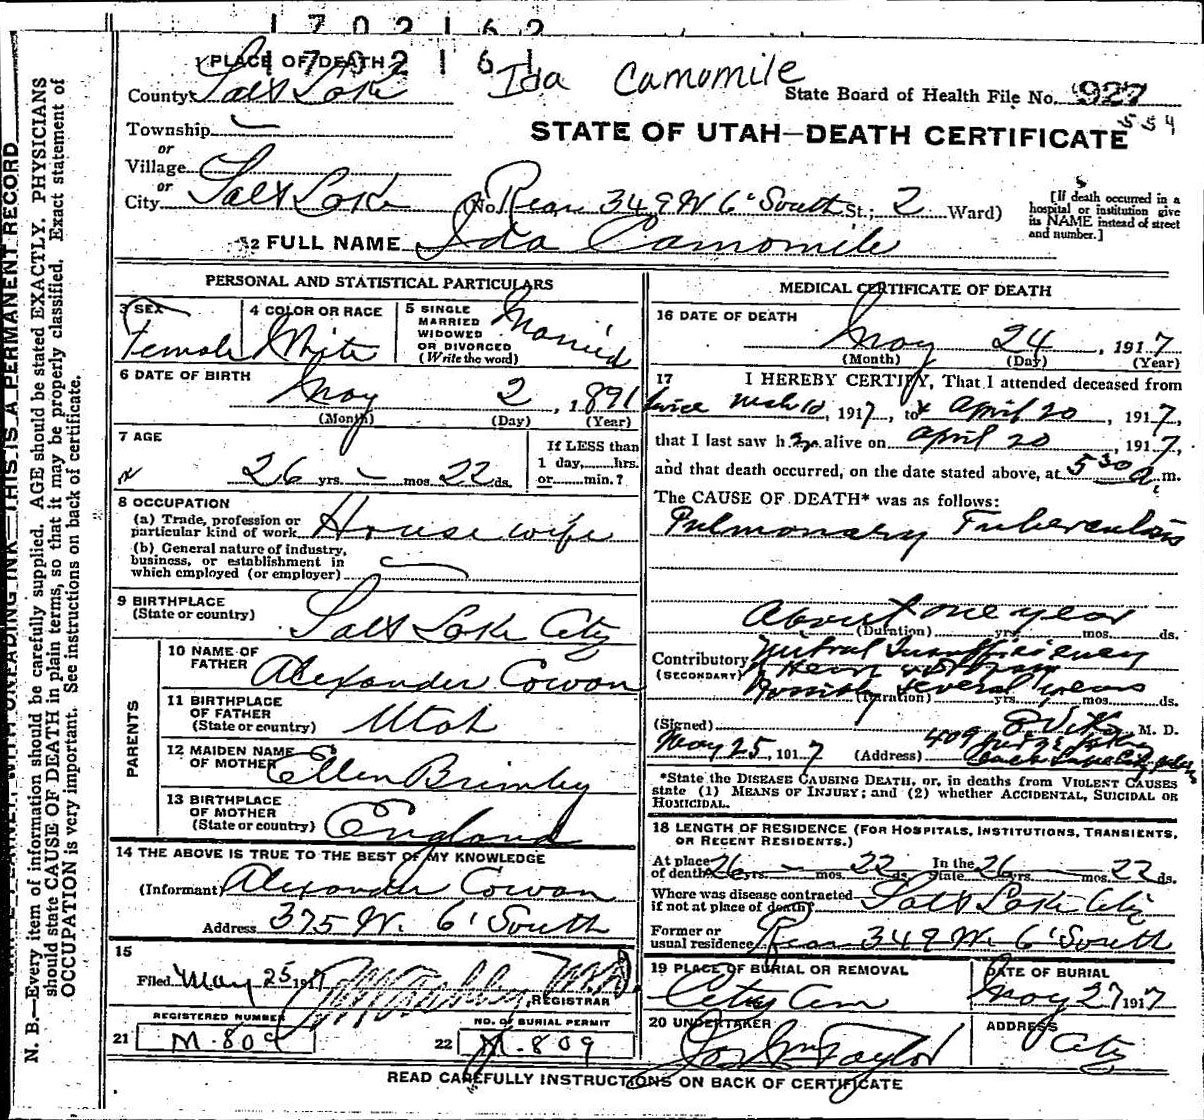 1 7 0 2 1 6 2
1 7 0 2 1 6 1
1 PLACE OF DEATH
Ida Camomile
County Salt Lake
State Board of Health File No. 927
554
Township
STATE OF UTAH—DEATH CERTIFICATE
or
Village
or
City Salt Lake (No. Rear 349 W 6' South St.; 2 Ward)
[If death occurred in a hospital or institution give its NAME instead of street and number.]
2 FULL NAME Ida Camomile
PERSONAL AND STATISTICAL PARTICULARS
3 SEX Female
4 COLOR OR RACE White
5 SINGLE MARRIED WIDOWED OR DIVORCED (Write the word) Married
6 DATE OF BIRTH May 2, 1891
(Month) (Day) (Year)
7 AGE 26 yrs. — mos. 22 ds.
If LESS than 1 day,......hrs. or......min.?
8 OCCUPATION
(a) Trade, profession or particular kind of work House wife
(b) General nature of industry, business, or establishment in which employed (or employer)
9 BIRTHPLACE (State or country) Salt Lake City
PARENTS
10 NAME OF FATHER Alexander Cowan
11 BIRTHPLACE OF FATHER (State or country) Utah
12 MAIDEN NAME OF MOTHER Ellen Brimley
13 BIRTHPLACE OF MOTHER (State or country) England
14 THE ABOVE IS TRUE TO THE BEST OF MY KNOWLEDGE
(Informant) Alexander Cowan
Address 375 W. 6' South
15
Filed May 25 1917
REGISTRAR
REGISTERED NUMBER
21 M-809
NO. OF BURIAL PERMIT
22 M-809
MEDICAL CERTIFICATE OF DEATH
16 DATE OF DEATH
May 24, 1917
(Month) (Day) (Year)
17 I HEREBY CERTIFY, That I attended deceased from
twice Mch 10, 1917, to & April 20, 1917,
that I last saw her alive on April 20, 1917,
and that death occurred, on the date stated above, at 5 30 a m.
The CAUSE OF DEATH* was as follows:
Pulmonary Tuberculosis
About one year
(Duration) yrs. mos. ds.
Contributory Mitral Insufficiency
(SECONDARY) of Heart
Possibly several years
(Duration) yrs. mos. ds.
(Signed) M. D.
May 25, 1917 (Address) 409
*State the DISEASE CAUSING DEATH, or, in deaths from VIOLENT CAUSES state (1) MEANS OF INJURY; and (2) whether ACCIDENTAL, SUICIDAL OR HOMICIDAL.
18 LENGTH OF RESIDENCE (FOR HOSPITALS, INSTITUTIONS, TRANSIENTS, OR RECENT RESIDENTS.)
At place of death 26 yrs. — mos. 22 ds. In the State 26 yrs. — mos. 22 ds.
Where was disease contracted if not at place of death? Salt Lake City
Former or usual residence Rear 349 W. 6' South
19 PLACE OF BURIAL OR REMOVAL City Cem
DATE OF BURIAL May 27 1917
20 UNDERTAKER Jos Wm Taylor
ADDRESS City
READ CAREFULLY INSTRUCTIONS ON BACK OF CERTIFICATE
WRITE PLAINLY WITH UNFADING INK—THIS IS A PERMANENT RECORD
N. B.—Every item of information should be carefully supplied. AGE should be stated EXACTLY. PHYSICIANS
should state CAUSE OF DEATH in plain terms, so that it may be properly classified. Exact statement of
OCCUPATION is very important. See instructions on back of certificate.